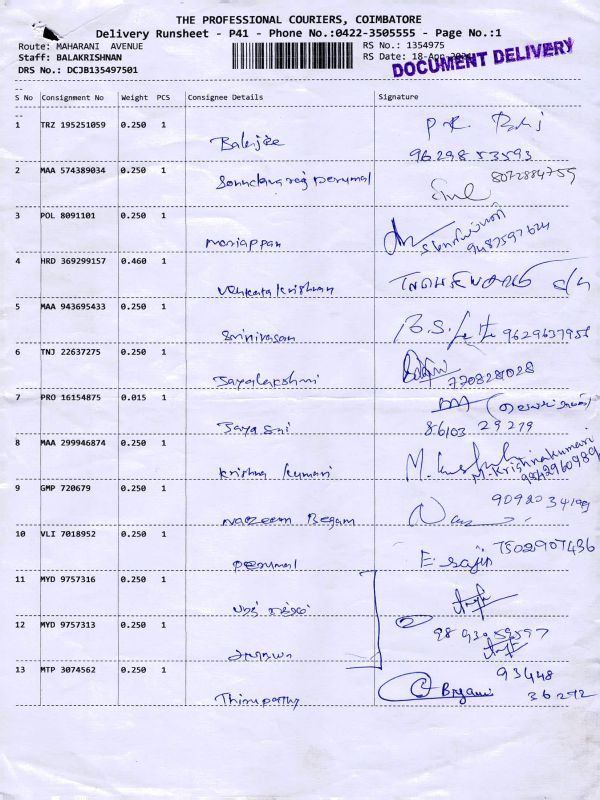 THE PROFESSIONAL COURIERS, COIMBATORE
Delivery Runsheet - P41 - Phone No.:0422-3505555 - Page No.:1
Route: MAHARANI AVENUE
RS No.: 1354975
Staff: BALAKRISHNAN
RS Date: 18-Apr-
DRS No.: DCJB135497501
DOCUMENT DELIVERY
S No Consignment No Weight PCS Consignee Details Signature
1 TRZ 195251059 0.250 1
9629853593
2 MAA 574389034 0.250 1 8072884759
3 POL 8091101 0.250 1 Mariappan
9487597624
4 HRD 369299157 0.460 1 Venkata krishnan
5 MAA 943695433 0.250 1 Srinivasan
6 TNJ 22637275 0.250 1 Jayalakshmi
770828028
7 PRO 16154875 0.015 1 Jaya Sri
86103 29279
8 MAA 299946874 0.250 1 Krishna Kumari
M.Krishnakumari
9842960989
9 GMP 720679 0.250 1 Nazeem Begam
10 VLI 7018952 0.250 1 Perumal E. Sajin 7502907436
11 MYD 9757316 0.250 1
12 MYD 9757313 0.250 1
13 MTP 3074562 0.250 1 Thirupathy
93448
36272